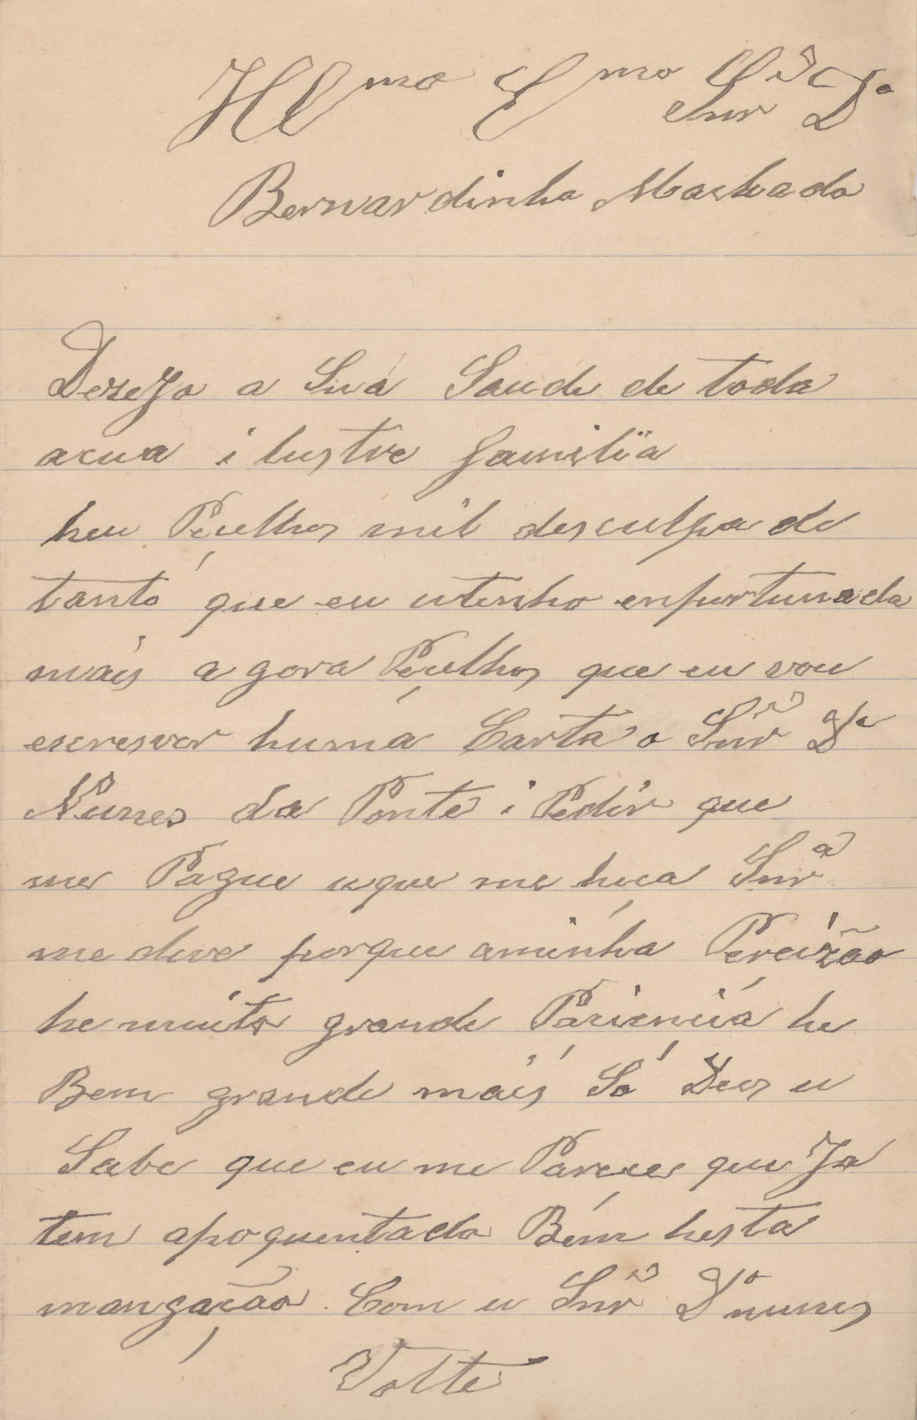 Illmo Emo Snr Dr
Bernardinho Machado
Dezejo a Sua Saude de toda
acua ilustre familia
heu Peulhes mil desculpa de
tanto que eu utenho enfurtunado
mais agora Peulhes que eu vou
escresver huma Carta o Snr Dr
Nunes da Ponte i Pedir que
me Pague uque me heca Snra
me deve purque aminha Percizão
he muito grande Pacienciá he
Bem grande mais Só Deos u
Sabe que eu me Parece que Ja
tem apoquentado Bem hesta
mangação Com u Snr Dr nunes
Volte